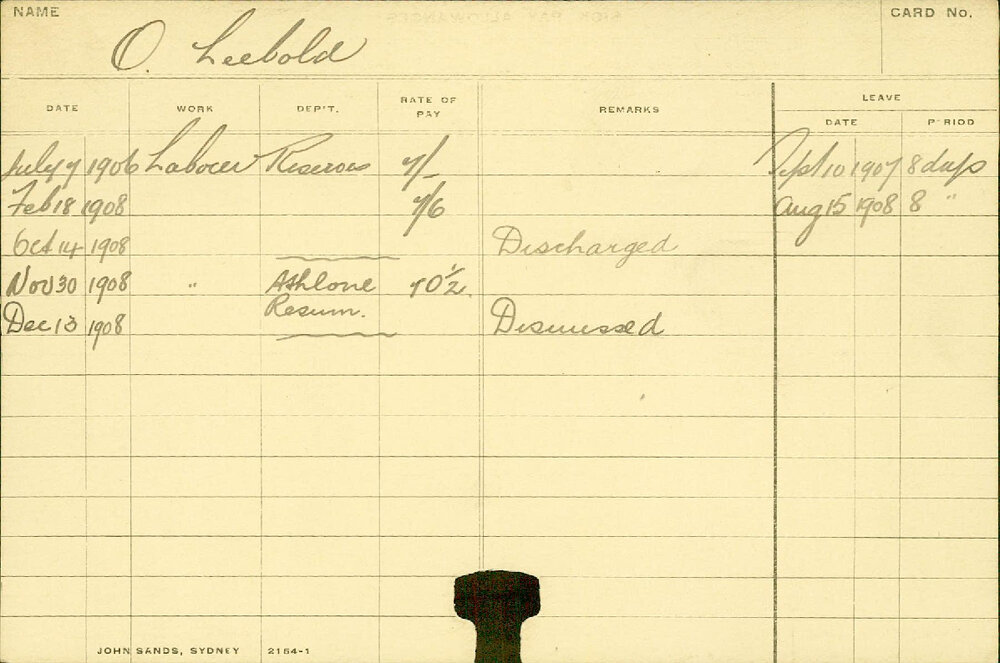 NAME
CARD No.
O. Leebold
DATE WORK DEP'T. RATE OF PAY REMARKS LEAVE
DATE PERIOD
July 7 1906 Labourer Reserves 7/- Sept 10 1907 8 days
Feb 18 1908 7/6 Aug 15 1908 8 "
Oct 14 1908 Discharged
Nov 30 1908 " Athlone 10½
Resum.
Dec 13 1908 Dismissed
JOHN SANDS, SYDNEY 2154-1